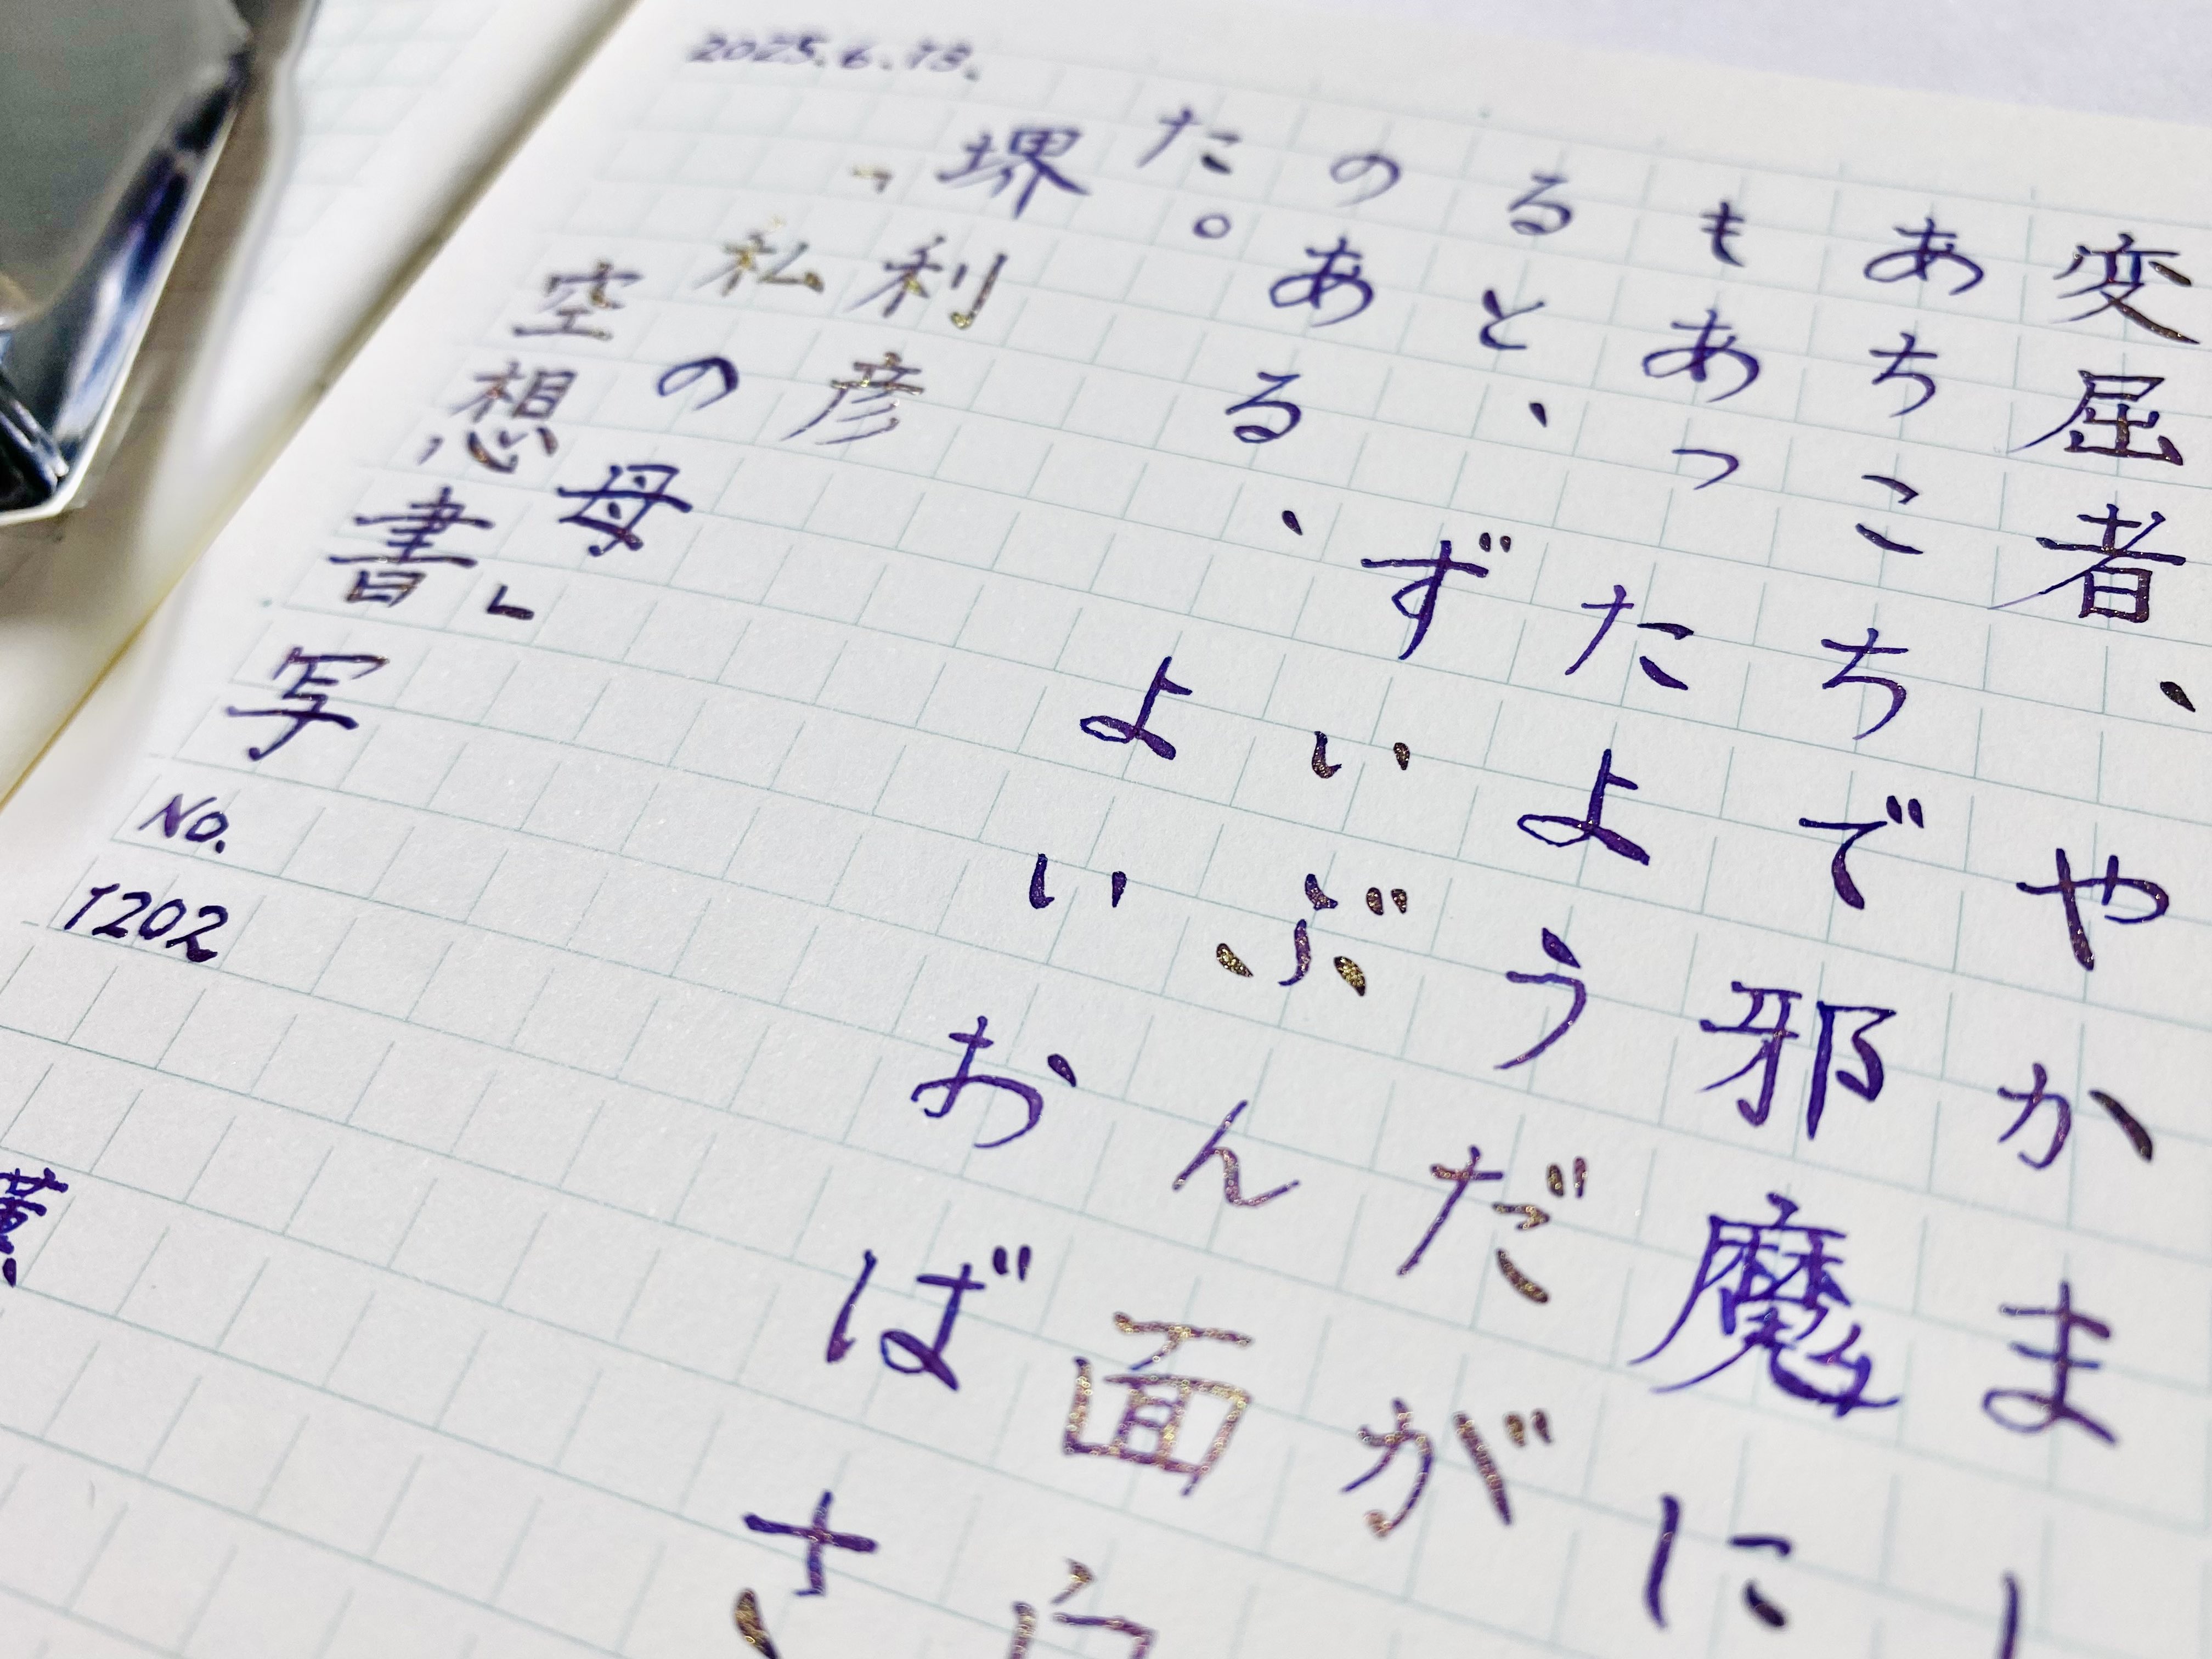 変屈者、やかまし
あちこちで邪魔に
もあったようだが
ると、ずいぶん面白
のある、よいおばさ
た。
堺利彦
「私の母」
空想書写 No. 1202
2025.6.13.
薫